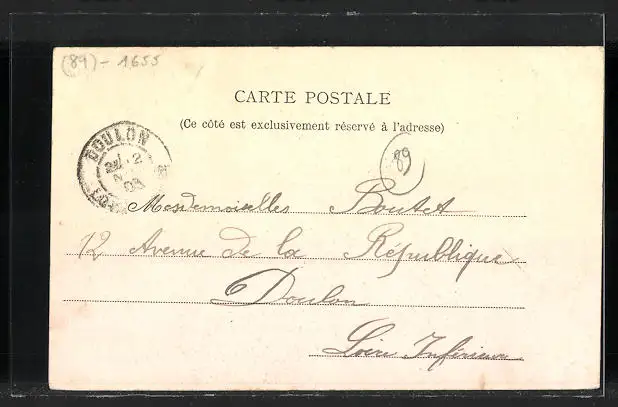 (89) - 1655
CARTE POSTALE
(Ce côté est exclusivement réservé à l'adresse)
DOULON
89
Mesdemoiselles Boutet
12 Avenue de la République
Doulon
Loire Inférieure